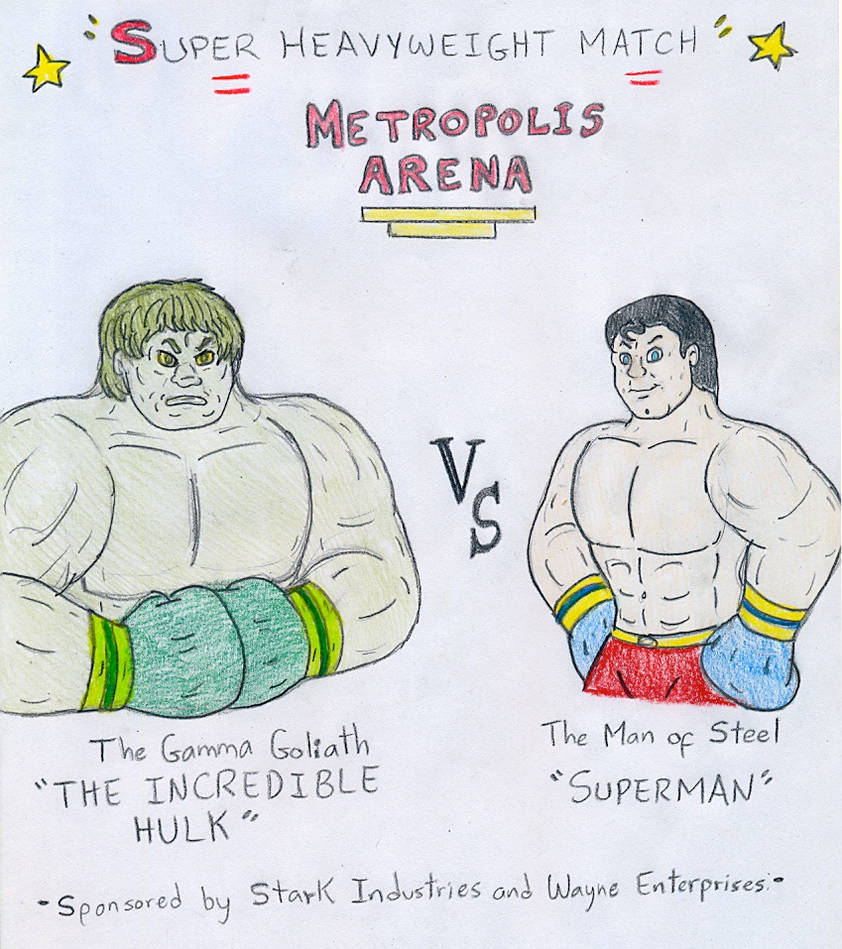 "SUPER HEAVYWEIGHT MATCH"
METROPOLIS
ARENA
VS
The Gamma Goliath
"THE INCREDIBLE
HULK"
The Man of Steel
"SUPERMAN"
-Sponsored by Stark Industries and Wayne Enterprises.-